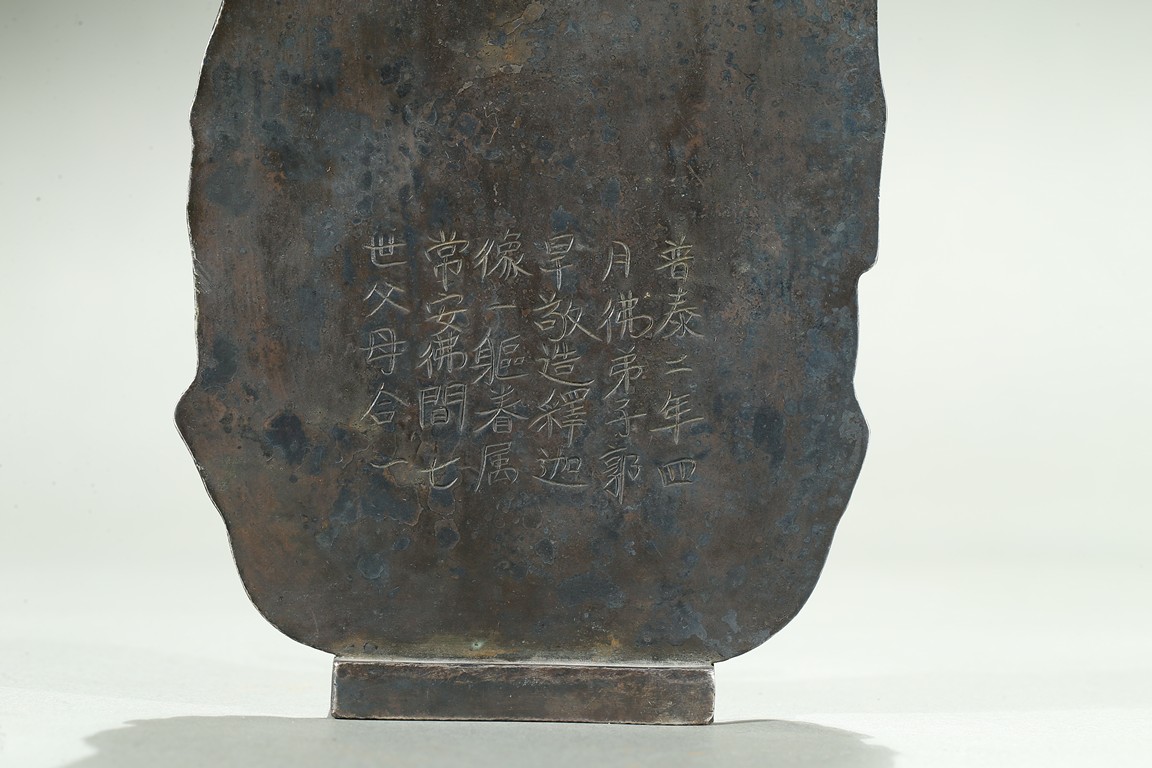 普泰二年四
月彿弟子郭
早敬造釋迦
像一軀眷属
常安彿間七
世父母合一